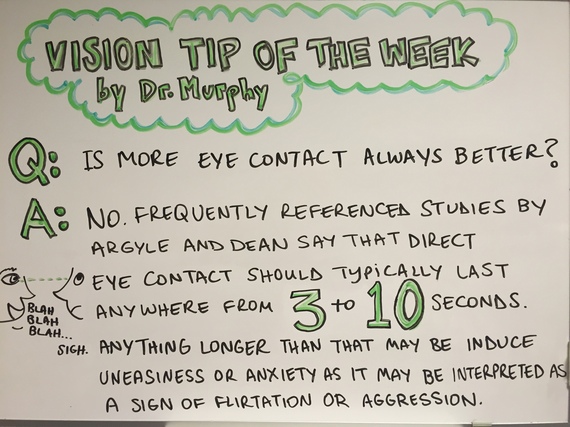 VISION TIP OF THE WEEK
by Dr. Murphy
Q: IS MORE EYE CONTACT ALWAYS BETTER?
A: NO. FREQUENTLY REFERENCED STUDIES BY
ARGYLE AND DEAN SAY THAT DIRECT
EYE CONTACT SHOULD TYPICALLY LAST
ANYWHERE FROM 3 to 10 SECONDS.
BLAH
BLAH
BLAH...
SIGH.
ANYTHING LONGER THAN THAT MAY BE INDUCE
UNEASINESS OR ANXIETY AS IT MAY BE INTERPRETED AS
A SIGN OF FLIRTATION OR AGGRESSION.